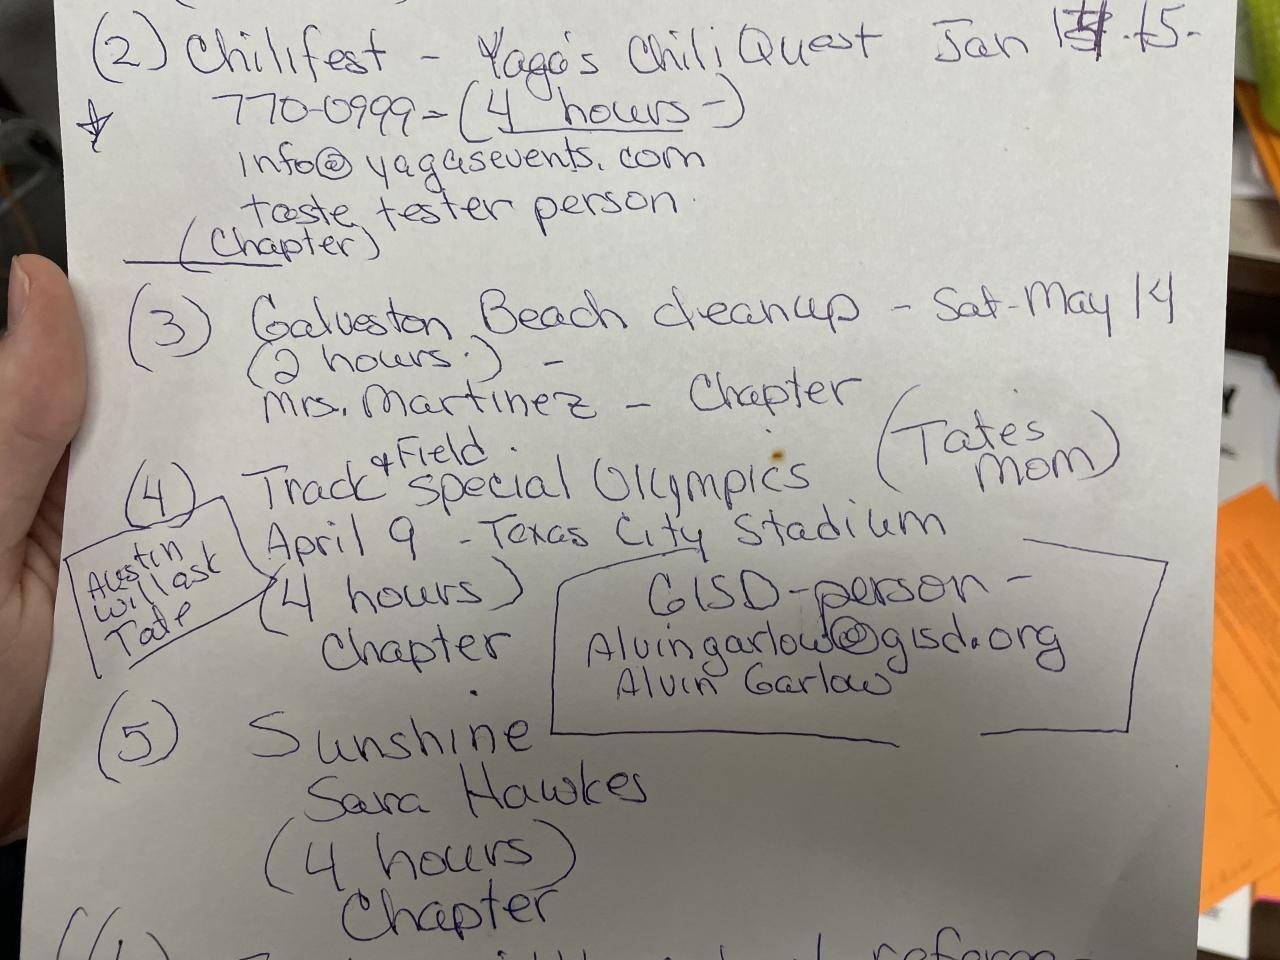 (2) Chilifest - Yaga's Chili Quest Jan 15.
770-0999 - (4 hours -)
info@yagasevents.com
taste tester person
(Chapter)
(3) Galveston Beach cleanup - Sat. May 14
(2 hours.) -
Mrs. Martinez - Chapter
(Tates
mom)
(4) Track & Field Special Olympics
April 9 - Texas City Stadium
(4 hours)
Chapter
Austin
will ask
Tate
GISD-person -
Alvingarlow@gisd.org
Alvin Garlow
(5) Sunshine
Sara Hawkes
(4 hours)
Chapter